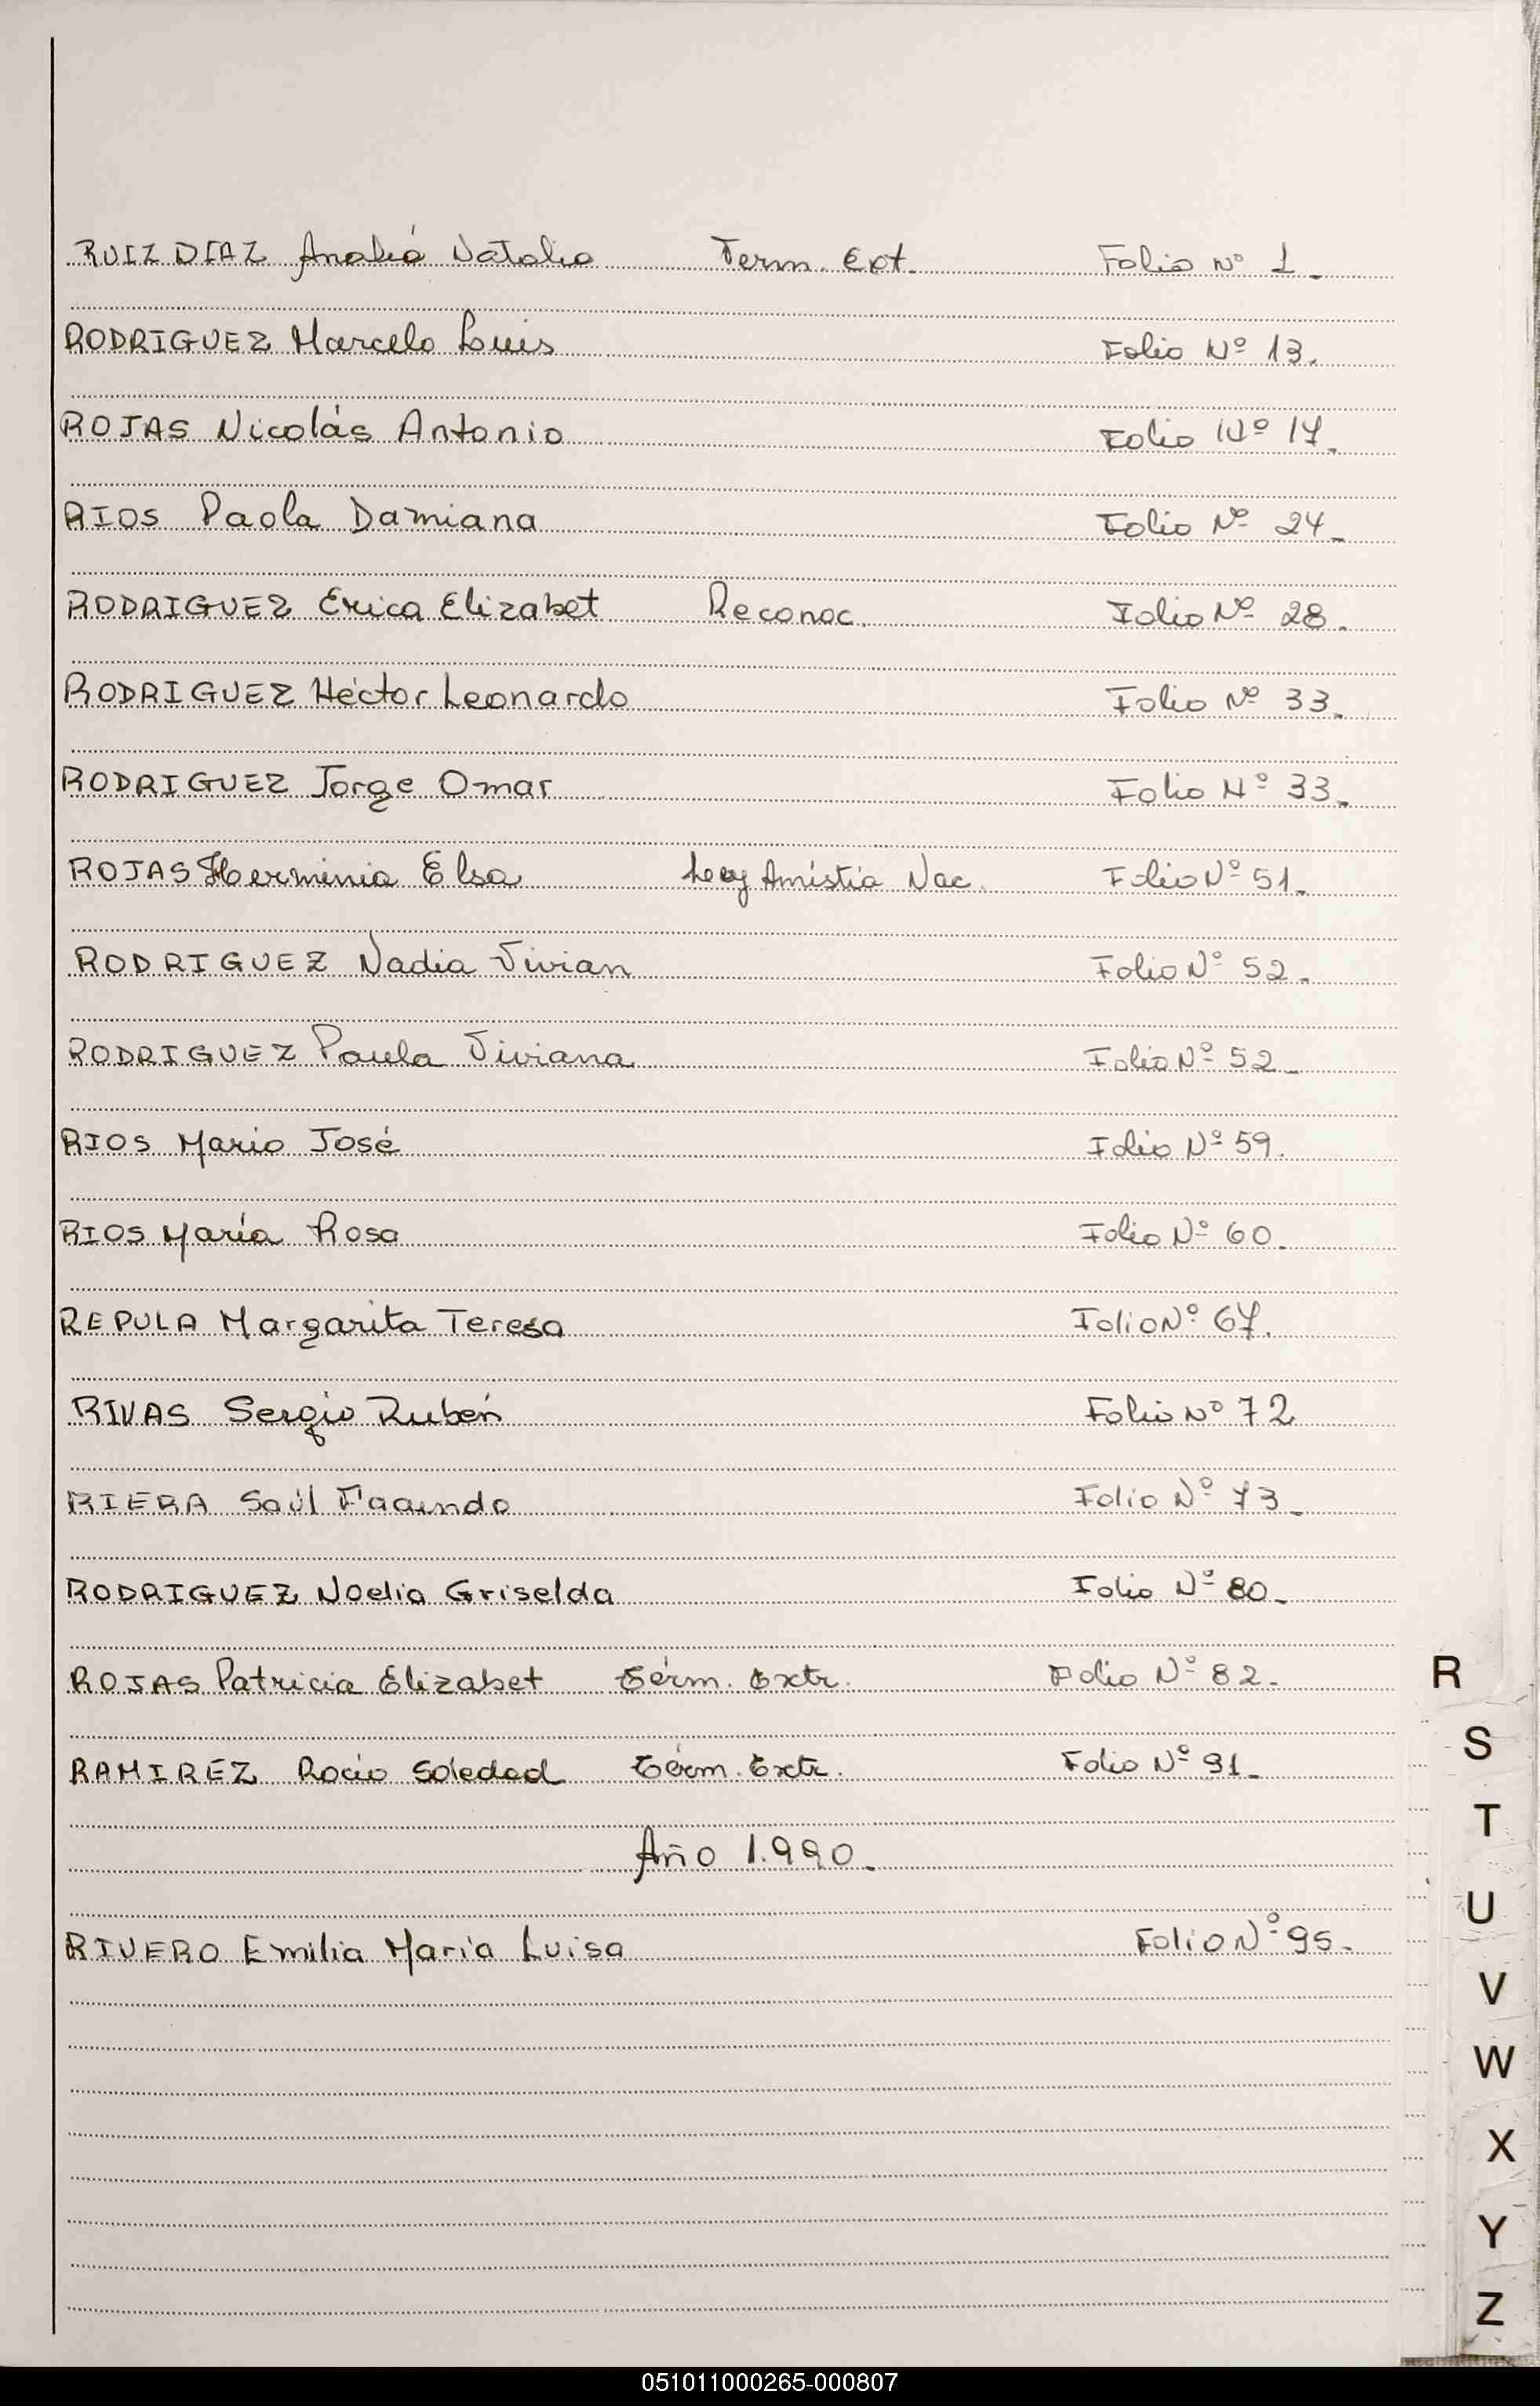 RUIZ DIAZ Analía Natalia Term. Ext. Folio Nº 1.
RODRIGUEZ Marcelo Luis Folio Nº 13.
ROJAS Nicolás Antonio Folio Nº 17.
RIOS Paola Damiana Folio Nº 24.
RODRIGUEZ Erica Elizabet Reconoc. Folio Nº 28.
RODRIGUEZ Héctor Leonardo Folio Nº 33.
RODRIGUEZ Jorge Omar Folio Nº 33.
ROJAS Herminia Elsa Ley Amistia Nac. Folio Nº 51.
RODRIGUEZ Nadia Vivian Folio Nº 52.
RODRIGUEZ Paula Viviana Folio Nº 52.
RIOS Mario José Folio Nº 59.
RIOS María Rosa Folio Nº 60.
REPULA Margarita Teresa Folio Nº 67.
RIVAS Sergio Rubén Folio Nº 72
RIERA Saúl Facundo Folio Nº 73.
RODRIGUEZ Noelia Griselda Folio Nº 80.
ROJAS Patricia Elizabet Térm. Extr. Folio Nº 82.
RAMIREZ Rocío Soledad Térm. Extr. Folio Nº 91.
Año 1.990.
RIVERO Emilia María Luisa Folio Nº 95.
R
S
T
U
V
W
X
Y
Z
051011000265-000807